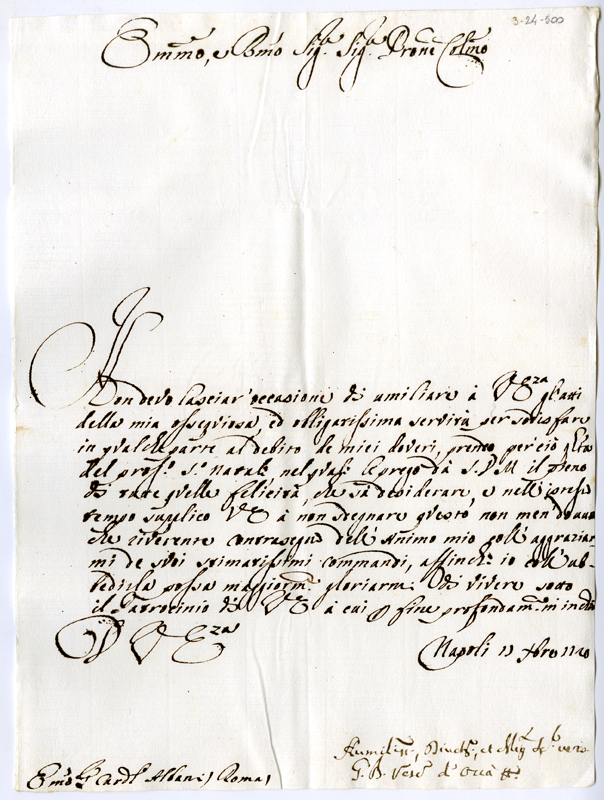 3-24-500
Emmo, e Rmo Sig.r Sig.r Prone Colmo
Non devo lasciar' occasione di umiliare à VEza gl'atti
della mia ossequiosa, ed obligatissima servitù per sodisfare
in qualche parte al debito de miei doveri, prendo perciò
del pross.o S.o Natale nel quale le prego dà S.D.M. il pieno
di tutte quelle felicità, che sà desiderare, e nell' istesso
tempo supplico VE à non sdegnare questo non men
che riverente contrasegno dell' Animo mio coll' aggraziar
mi de suoi stimatissimi commandi, affinche io coll' ub-
bedirla possa maggiorm.te gloriarmi di vivere sotto
il Patrocinio di VE à cui p fine profondam.te m' inchino
D VEza
Napoli 13 Xbre 1720
Humiliss. Divotis. et
G. B. Vesc.o d'
Emo Sr. Card.l Albani) Roma)